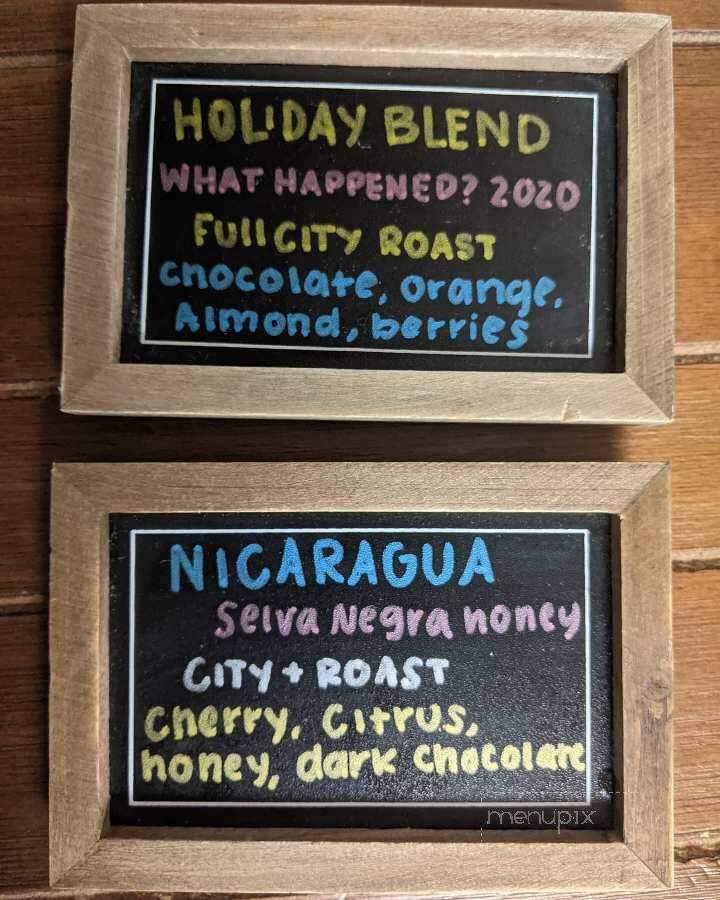 HOLIDAY BLEND
WHAT HAPPENED? 2020
Full CITY ROAST
chocolate, orange,
Almond, berries
NICARAGUA
Selva Negra honey
CITY + ROAST
Cherry, Citrus,
honey, dark chocolate
menupix